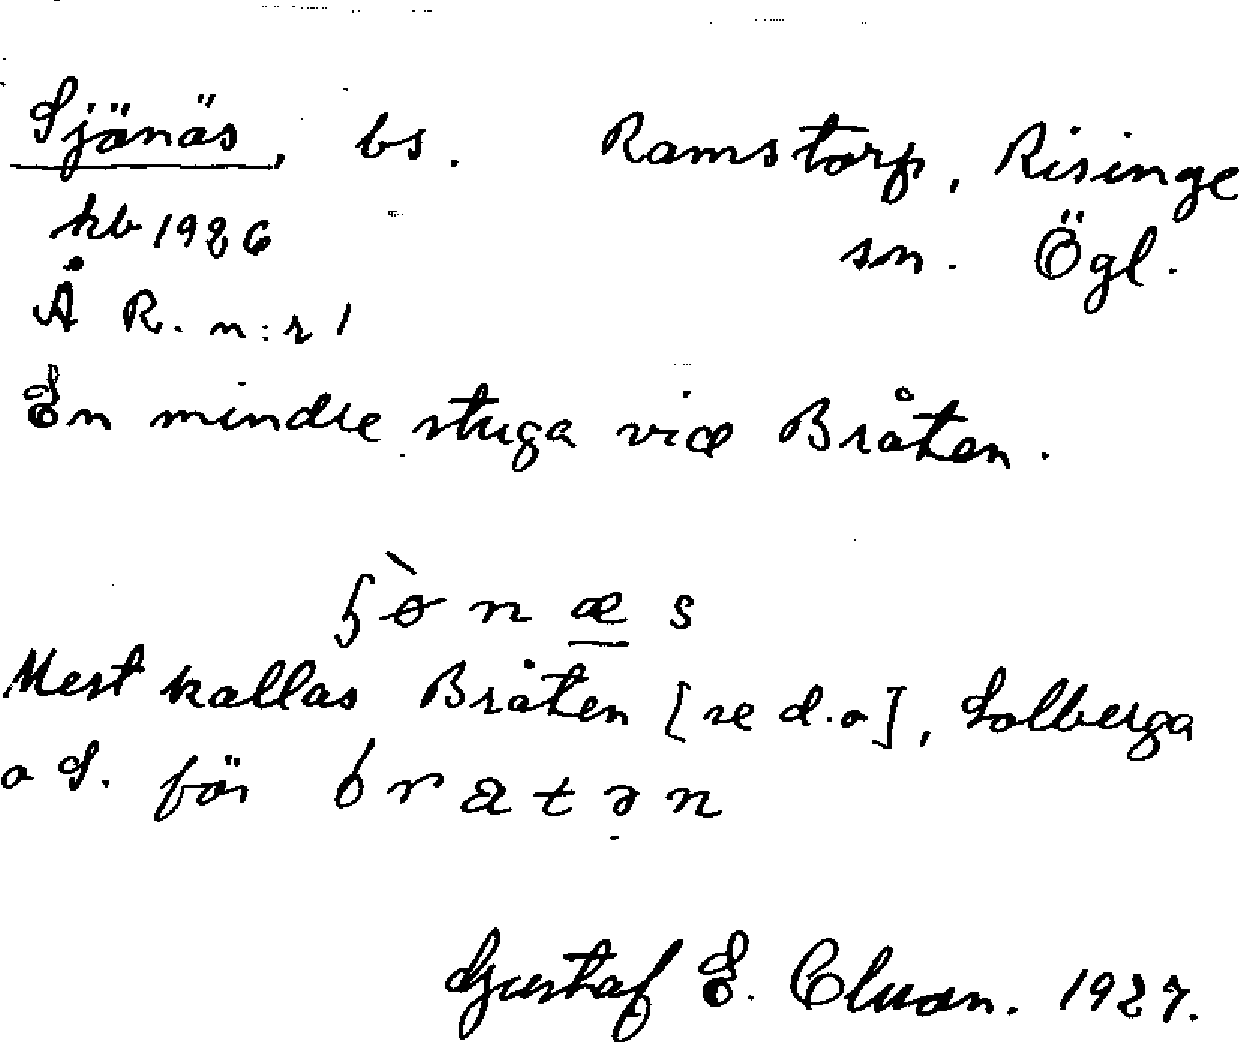 Sjönäs, bs. Ramstorp, Risinge
kb 1926 sn. Ögl.
Å R. n:r 1
En mindre stuga vid Bråten.
næs
Mest kallas Bråten [se d.o], Solberga
o S. för
Gustaf E. Cluan. 1927.